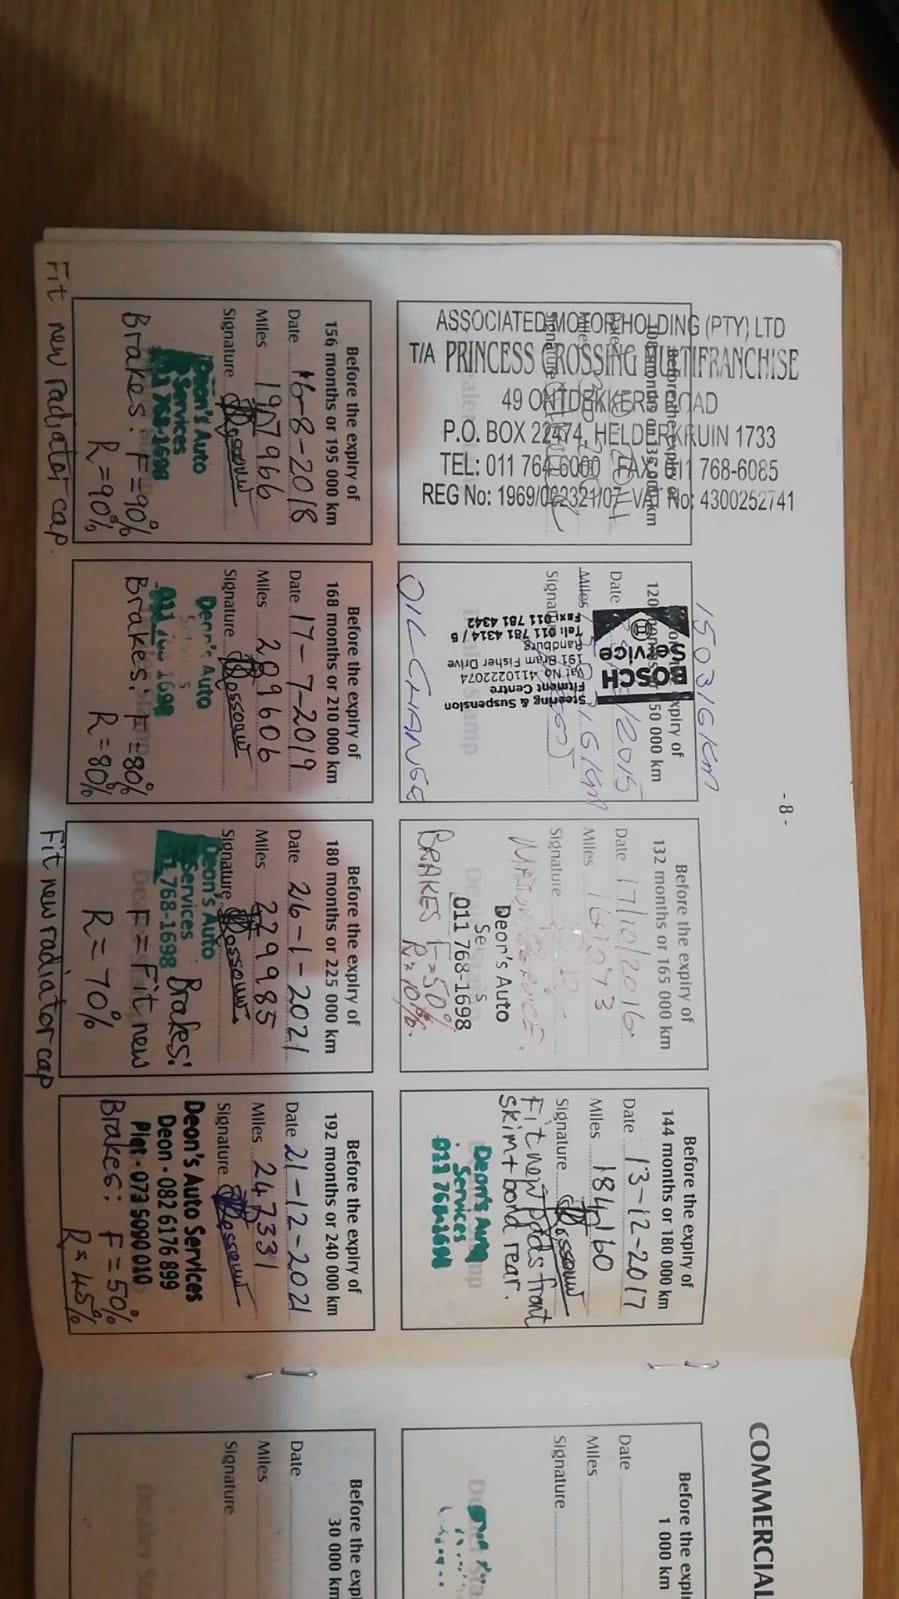 - 8 -
ASSOCIATED MOTOR HOLDING (PTY) LTD
T/A PRINCESS CROSSING MULTIFRANCHISE
49 ONTDEKKERS ROAD
P.O. BOX 22474, HELDERKRUIN 1733
TEL: 011 764-6000 FAX: 011 768-6085
REG No: 1969/002321/07 VAT No: 4300252741
150316 Km
expiry of
120
50 000 km
Date
/2015
Miles
Signat
BOSCH
Service
Steering & Suspension
Fitment Centre
Vat No. 4110222074
191 Bram Fisher Drive
Randburg
Tel: 011 781 4314 / 5
Fax: 011 781 4342
OIL CHANGE
Before the expiry of
132 months or 165 000 km
Date 17/10/2016
Miles 169073
Signature
MAJOR SERVICE.
Deon's Auto
Services
011 768-1698
BRAKES F=50%
R=10%.
Before the expiry of
144 months or 180 000 km
Date 13-12-2017
Miles 184160
Signature Rossouw
Fit new pads front
skim + bond rear.
Deon's Auto
Services
011 768-1698
Before the expiry of
156 months or 195 000 km
Date 16-8-2018
Miles 197966
Signature Rossouw
Deon's Auto
Services
011 768-1698
Brakes: F=90%
R=90%
Fit new radiator cap.
Before the expiry of
168 months or 210 000 km
Date 17-7-2019
Miles 209606
Signature Rossouw
Deon's Auto
011 768 1698
Brakes: F=80%
R=80%
Before the expiry of
180 months or 225 000 km
Date 26-1-2021
Miles 227985
Signature Rossouw.
Deon's Auto
Services
011 768-1698
Brakes:
F = Fit new
R = 70%
Fit new radiator cap
Before the expiry of
192 months or 240 000 km
Date 21-12-2021
Miles 247331
Signature Rossouw
Deon's Auto Services
Deon - 082 6176 899
Piet - 073 5090 010
Brakes: F=50%
R=45%
COMMERCIAL
Before the expi
1 000 km
Date
Miles
Signature
Before the exp
30 000 km
Date
Miles
Signature